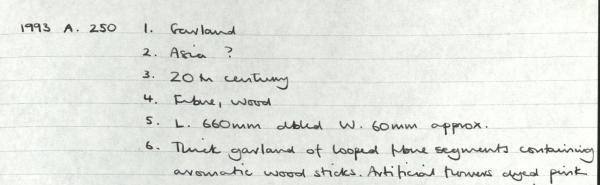 1993 A. 250 1. Garland
2. Asia ?
3. 20th century
4. Fibre, wood
5. L. 660mm dbled W. 60mm approx.
6. Thick garland of looped fibre segments containing
aromatic wood sticks. Artificial flowers dyed pink